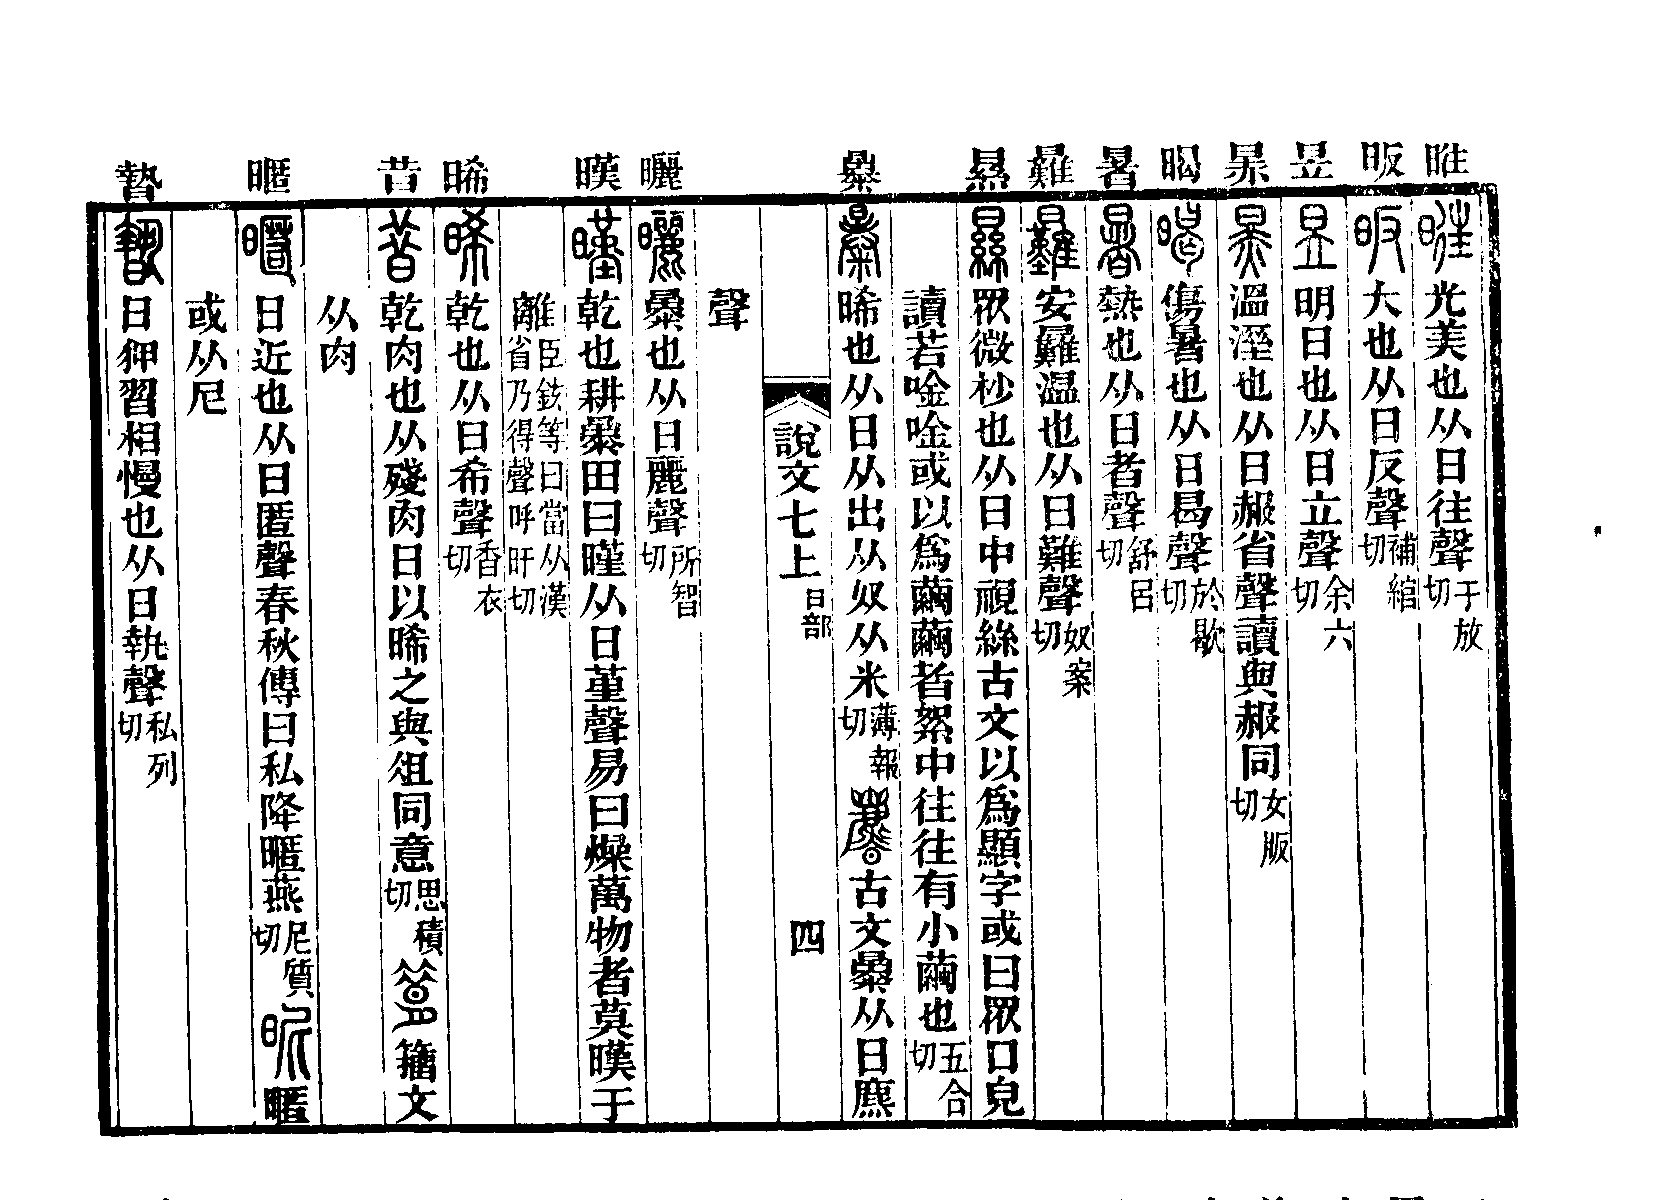 暀 光美也从日往聲于放切
昄 大也从日反聲補綰切
昱 明日也从日立聲余六切
㬮 溫溼也从日赧省聲讀與赧同女版切
暍 傷暑也从日曷聲於歇切
暑 熱也从日者聲舒呂切
㬮 安㬮溫也从日難聲奴案切
㬎 眾微杪也从日中視絲古文以爲顯字或曰眾口皃
讀若唫唫或以爲繭繭者絮中往往有小繭也五合切
㬥 晞也从日从出从𠬞从米薄報切 古文㬥从日麃
聲
說文七上 日部 四
曬 㬥也从日麗聲所智切
暵 乾也耕㬥田曰暵从日堇聲易曰燥萬物者莫暵于
離臣鉉等曰當从漢省乃得聲呼旰切
晞 乾也从日希聲香衣切
昔 乾肉也从殘肉日以晞之與俎同意思積切 籒文
从肉
暱 日近也从日匿聲春秋傳曰私降暱燕尼質切 暱
或从尼
暬 日狎習相慢也从日執聲私列切